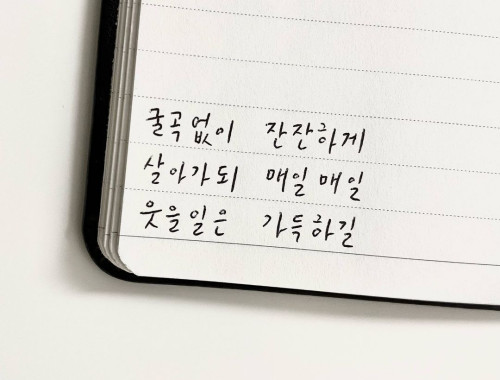 굴곡없이 잔잔하게
살아가되 매일매일
웃을일은 가득하길